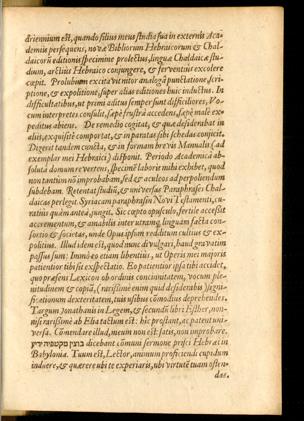 driennium est, quando filius meus studia sua in externis Aca-
demiis persequens, novæ Bibliorum Hebraicorum & Chal-
daicorũ editionis specimine prolectus, linguæ Chaldaicæ stu-
dium, arctius Hebraico conjungere, & ferventius excolere
cœpit. Prolubium excitavit analogâ punctatione, scri-
ptione, & expolitione, super alias editiones huic inductus. In
difficultatibus, ut prima aditus semper sunt difficiliores, Vo-
cum interpretes consulit, sæpè frustrà accedens, sæpè malè ex-
peditus abiens. De remedio cogitat, & quæ desiderabat in
aliis, exquisitè comportat, & in patatas sibi schedas conjicit.
Digerit tandem cõncta, & in formam brevis Manualis (ad
exemplar mei Hebraici) disponit. Periodo Academicâ ab-
solutâ domum revertens, specimẽ laboris mihi exhibet, quod
non tantùm nõ improbabam, sed & aculeos ad perpoliendum
subdebam. Retentat studiũ, & universæ Paraphrases Chal-
daicas perlegit. Syriacam paraphrasin Novi Testamenti, cu-
ratius quàm antea, jungit. Sic capto opusculo, fertile accessit
accrementum, & amabilis inter utramq; linguam facta con-
sortio & societas, unde Opus ipsum redditum cultius & ex-
politius. Illud idem est, quod nunc divulgari, haud gravatim
possus sum: Immò eo etiam libentius, ut Operis mei majoris
patientior tibi sit expectatio. Eo patientior ipsa tibi accidet,
quo præsens Lexicon ab ordinis concinnitatem, vocum ple-
nitudinem & copiã, (rarissimè enim quid desiderabis) signi-
ficationum dexteritatem, tuis usibus cõmodius deprehendes.
Targum Jonathanis in Legem, & secundũ libri Esther, non-
nisi rarissimè ab Elia tactum est: hîc prostant, ac patent uni-
versa. Cõmendare illud, meum non est: satis, non improbare.
בוצין מקטפיה ידיע dicebant cõmuni sermone prisci Hebræi in
Babylonia. Tuum est, Lector, animum proficiendi cupidum
induere, & quærere ubi te experiaris, ubi virtutẽ tuam osten-
das.